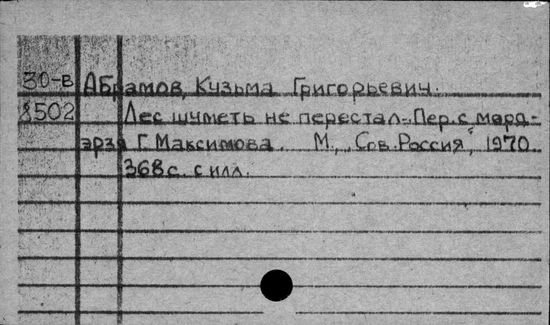 30-в Абрамов, Кузьма Григорьевич.
8502 Лес шуметь не перестал. Пер. с морд-
эрзя Г. Максимова. М., "Сов. Россия", 1970.
368 с. с илл.